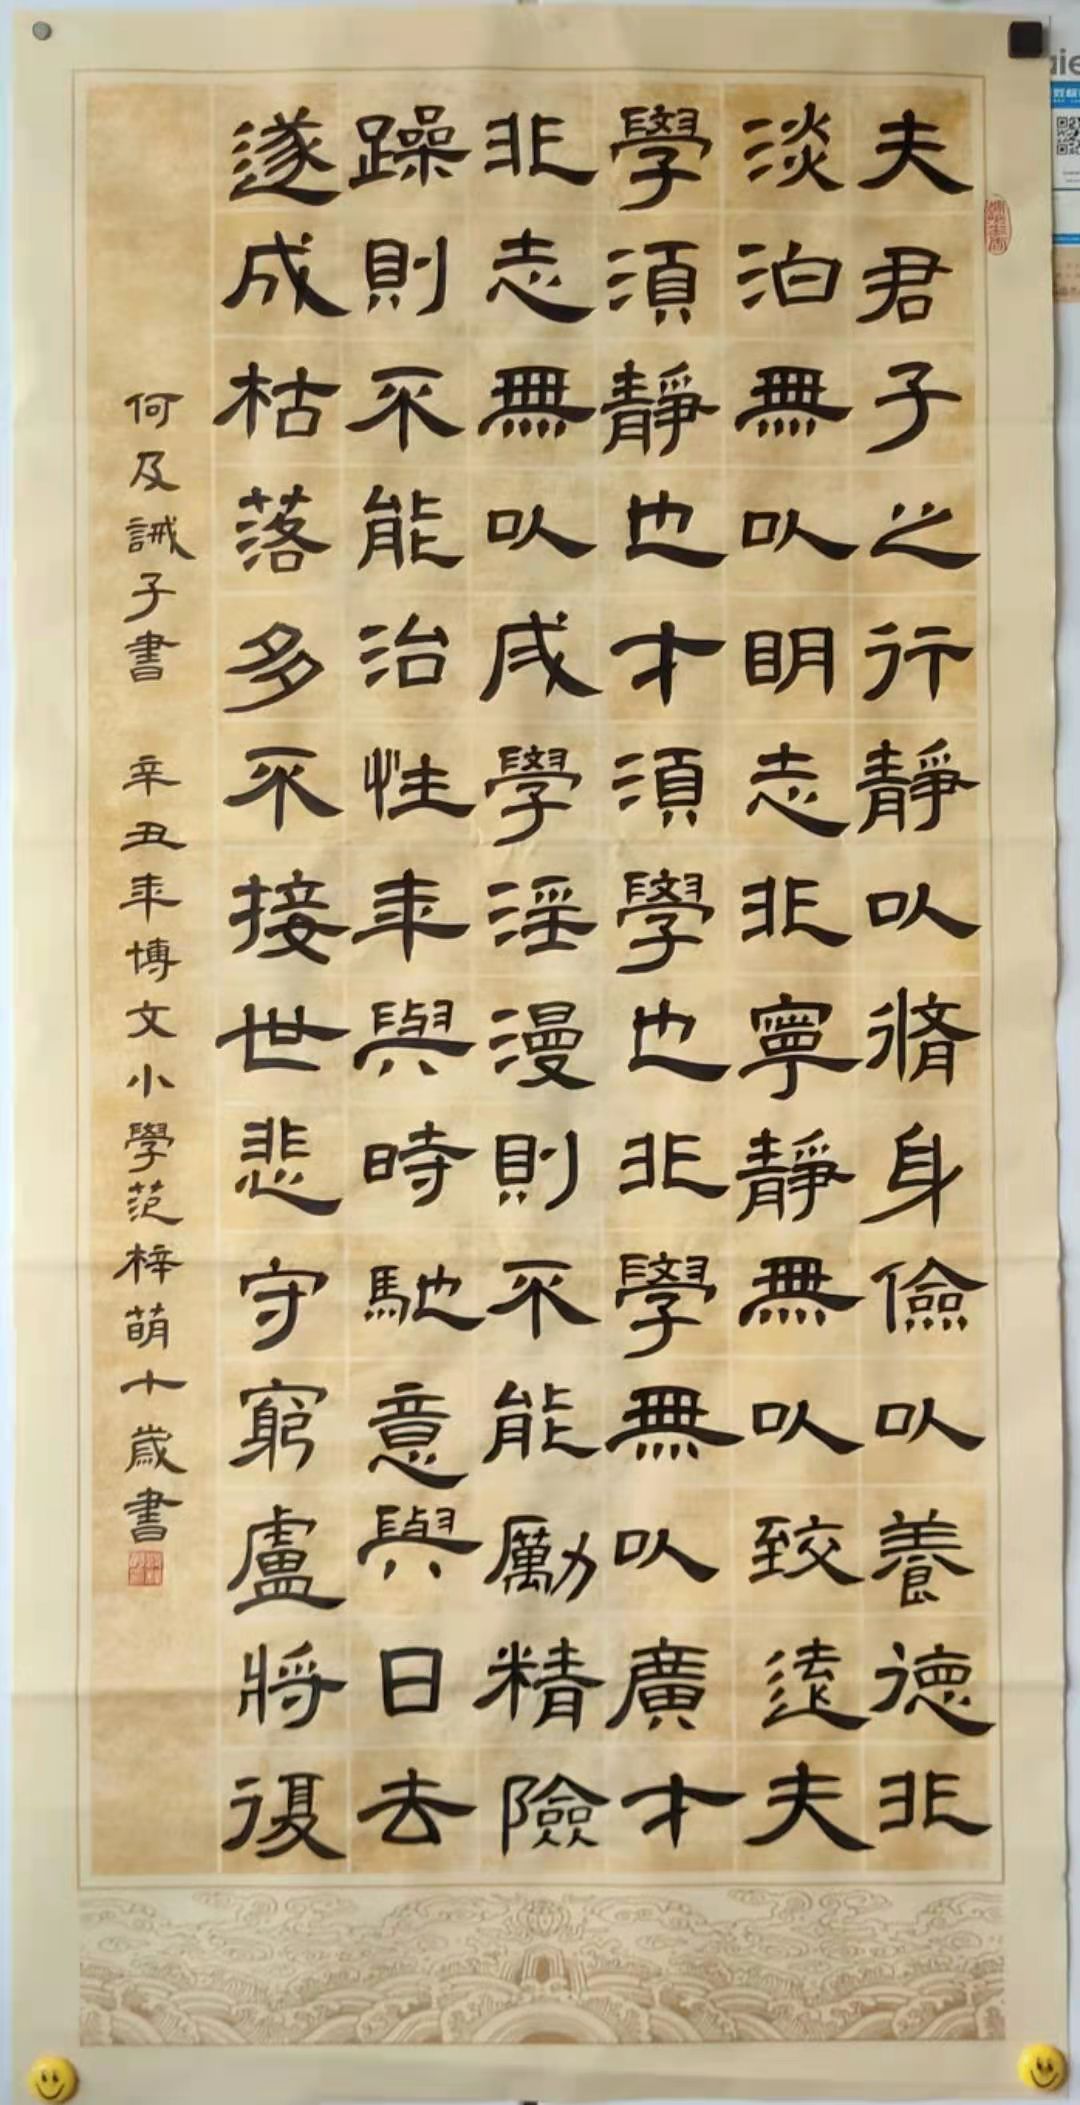 夫君子之行靜以脩身儉以養德非
淡泊無以明志非寧靜無以致遠夫
學須靜也才須學也非學無以廣才
非志無以成學淫漫則不能勵精險
躁則不能治性年與時馳意與日去
遂成枯落多不接世悲守窮盧將復
何及誡子書 辛丑年博文小學范梓萌十歲書